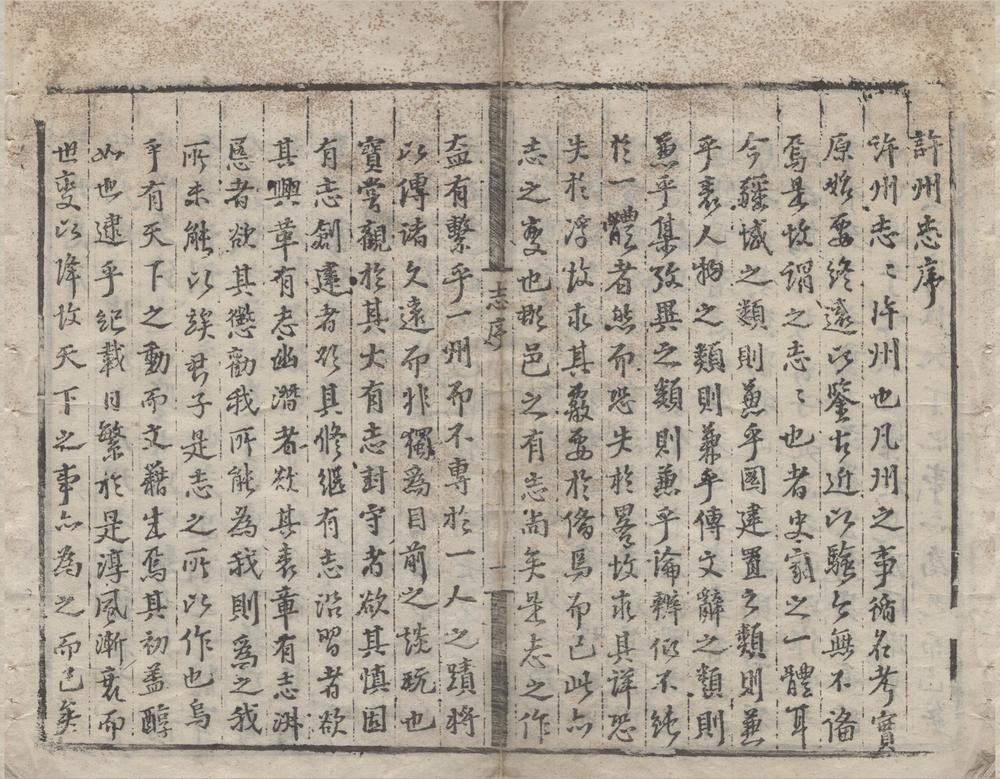 許州志序
許州志〻許州也凡州之事循名考實
原始要終遠以鑒古近以驗今無不備
焉是故謂之志〻也者史家之一體耳
今疆域之類則兼乎圖建置之類則兼
乎表人物之類則兼乎傳文辭之類則
兼乎集攷異之類則兼乎論辨似不純
於一體者然而恐失於畧故求其詳恐
失於浮故求其嚴要於俻焉而已此亦
志之變也郡邑之有志尚矣是志之作
志序
一
盍有繫乎一州而不專於一人之蹟將
以傳諸久遠而非獨為目前之談玩也
寶嘗觀於其大有志封守者欲其慎固
有志創建者欲其修継有志沿習者欲
其興革有志幽潛者欲其表章有志淑
慝者欲其懲勸我所能為我則為之我
所未能以俟君子是志之所以作也烏
乎有天下之動而文藉生焉其初盖醇
如也逮乎紀載日繁於是淳風漸衰而
世變以降故天下之事亦為之而已矣